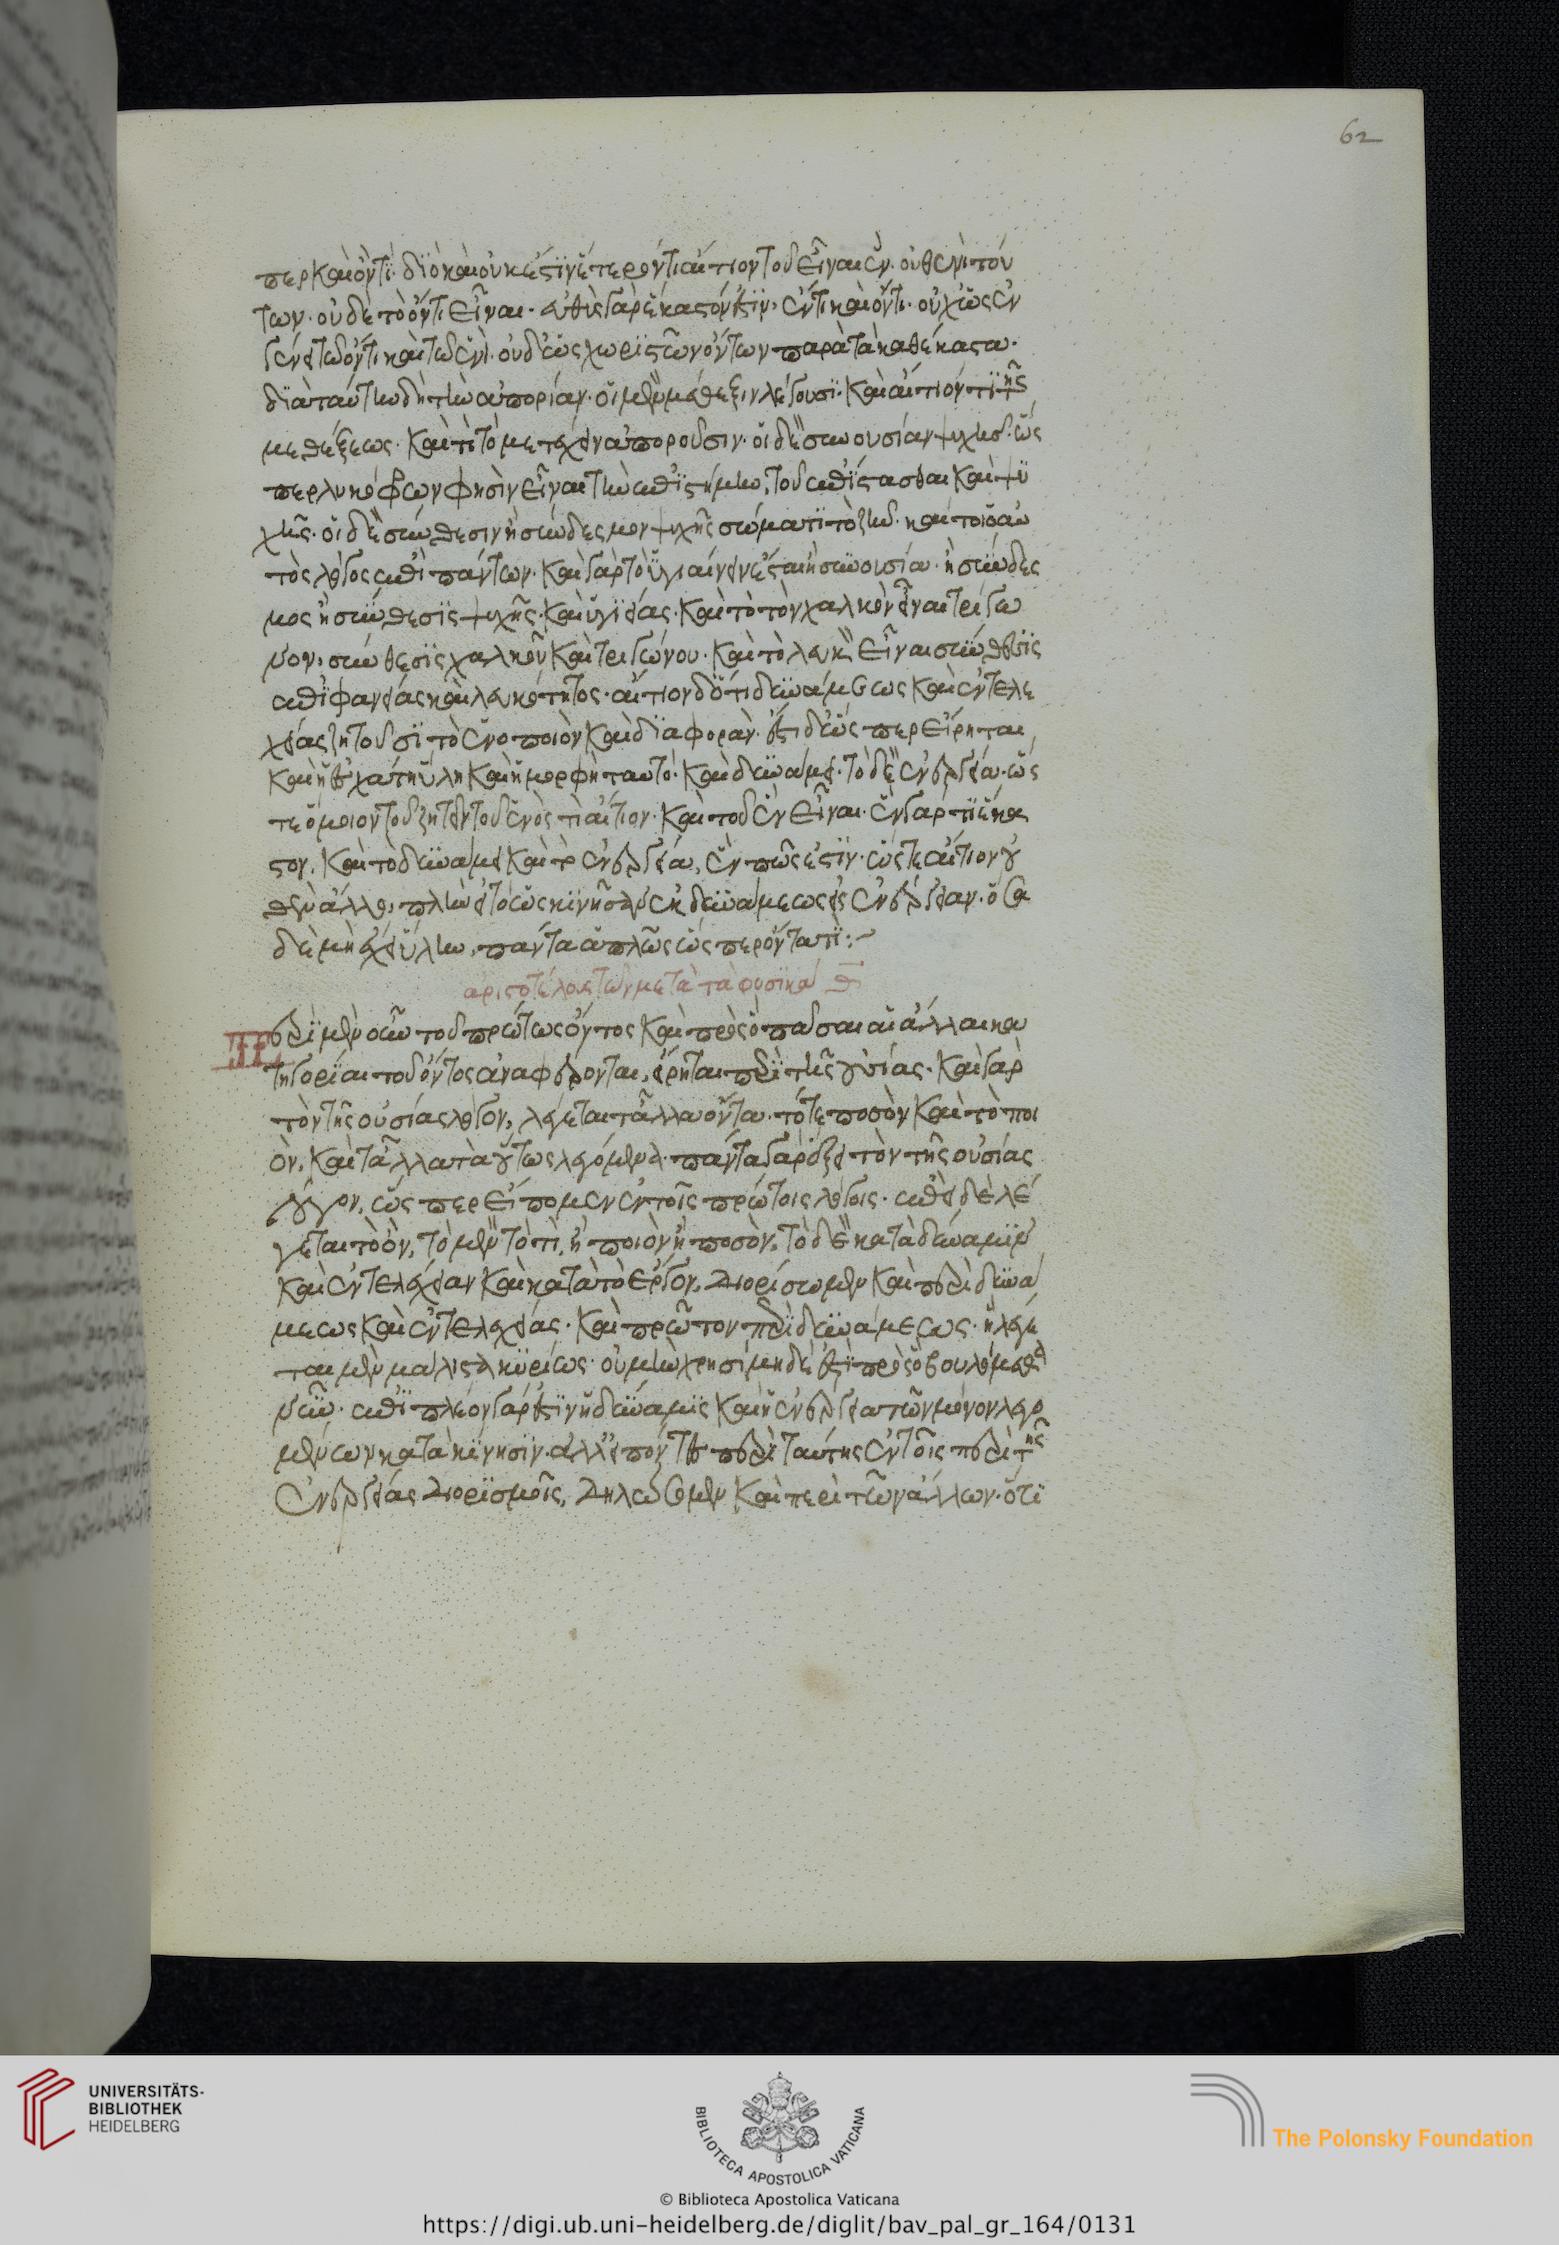 περ καὶ ὄντι. διὸ καὶ οὐκ ἔστιν ἕτερόν τι αἴτιον τοῦ εἶναι ἕν. οὐθενὶ τού
των. οὐδὲ τὸ ὄν τι εἶναι. εὐθὺς γὰρ ἕκαστόν ἐστιν, ἕν τι καὶ ὄν τι. οὐχ ὡς ἐν
γένει τῷ ὄντι καὶ τῷ ἑνὶ. οὐδ' ὡς χωριστῶν ὄντων παρὰ τὰ καθέκαστα.
διὰ ταύτην δὴ τὴν ἀπορίαν. οἱ μὲν μέθεξιν λέγουσι. καὶ αἴτιον τί τῆς
μεθέξεως. καὶ τί τὸ μετέχειν ἀποροῦσιν. οἱ δὲ συνουσίαν ψυχῆς. ὥς
περ λυκόφρων φησὶν εἶναι τὴν ἐπιστήμην, τοῦ ἐπίστασθαι καὶ ψυ
χῆς. οἱ δὲ σύνθεσιν ἢ σύνδεσμον ψυχῆς σώματι τὸ ζῆν. καίτοι ὁ αὐ
τὸς λόγος ἐπὶ πάντων. καὶ γὰρ τὸ ὑγιαίνειν ἔσται ἢ συνουσία. ἢ σύνδεσ
μος ἢ σύνθεσις ψυχῆς. καὶ ὑγιείας. καὶ τὸ τὸν χαλκὸν εἶναι τρίγω
νον, σύνθεσις χαλκοῦ καὶ τριγώνου. καὶ τὸ λευκὸν εἶναι σύνθεσις
ἐπιφανείας καὶ λευκότητος. αἴτιον δ' ὅτι δυνάμεως καὶ ἐντελε
χείας ζητοῦσι τὸ ἑνοποιὸν καὶ διαφοράν. ἔστι δ' ὥσπερ εἴρηται
καὶ ἡ ἐσχάτη ὕλη καὶ ἡ μορφὴ ταυτό. καὶ δυνάμει. τὸ δὲ ἐνεργείᾳ. ὥς
τε ὅμοιον τοῦ ζητεῖν τοῦ ἑνὸς τί αἴτιον. καὶ τοῦ ἓν εἶναι. ἓν γάρ τι ἕκα
στον, καὶ τὸ δυνάμει καὶ τὸ ἐνεργείᾳ, ἕν πώς ἐστιν. ὥστε αἴτιον οὐ
θὲν ἄλλο, πλὴν εἴ τὸ ὡς κινῆσαν ἐκ δυνάμεως εἰς ἐνέργειαν. ὅσα
δὲ μὴ ἔχει ὕλην, πάντα ἁπλῶς ὥσπερ ὄντα τι:~
ἀριστοτέλους τῶν μετὰ τὰ φυσικά θ
Περὶ μὲν οὖν τοῦ πρώτως ὄντος καὶ πρὸς ὃ πᾶσαι αἱ ἄλλαι κα
τηγορίαι τοῦ ὄντος ἀναφέρονται, εἴρηται περὶ τῆς οὐσίας. κατὰ γὰρ
τὸν τῆς οὐσίας λόγον, λέγεται τἆλλα ὄντα. τό τε ποσὸν καὶ τὸ ποι
ὸν, καὶ τἆλλα τὰ οὕτως λεγόμενα. πάντα γὰρ ἕξει τὸν τῆς οὐσίας
λόγον, ὥσπερ εἴπομεν ἐν τοῖς πρώτοις λόγοις. ἐπεὶ δὲ λέ
γεται τὸ ὂν, τὸ μὲν τὸ τί, ἢ ποιὸν ἢ ποσὸν, τὸ δὲ κατὰ δύναμιν
καὶ ἐντελέχειαν καὶ κατὰ τὸ ἔργον, διορίσωμεν καὶ περὶ δυνά
μεως καὶ ἐντελεχείας. καὶ πρῶτον περὶ δυνάμεως. ἣ λέγε
ται μὲν μάλιστα κυρίως. οὐ μὴν χρησίμη δέ ἐστι πρὸς ὃ βουλόμεθα
νῦν. ἐπὶ πλέον γάρ ἐστιν ἡ δύναμις καὶ ἡ ἐνέργεια τῶν μόνον λεγο
μένων κατὰ κίνησιν. ἀλλ' εἰπόντες περὶ ταύτης ἐν τοῖς περὶ τῆς
ἐνεργείας διορισμοῖς, δηλώσομεν καὶ περὶ τῶν ἄλλων. ὅτι
62
UNIVERSITÄTS-
BIBLIOTHEK
HEIDELBERG
BIBLIOTECA APOSTOLICA VATICANA
The Polonsky Foundation
© Biblioteca Apostolica Vaticana
https://digi.ub.uni-heidelberg.de/diglit/bav_pal_gr_164/0131